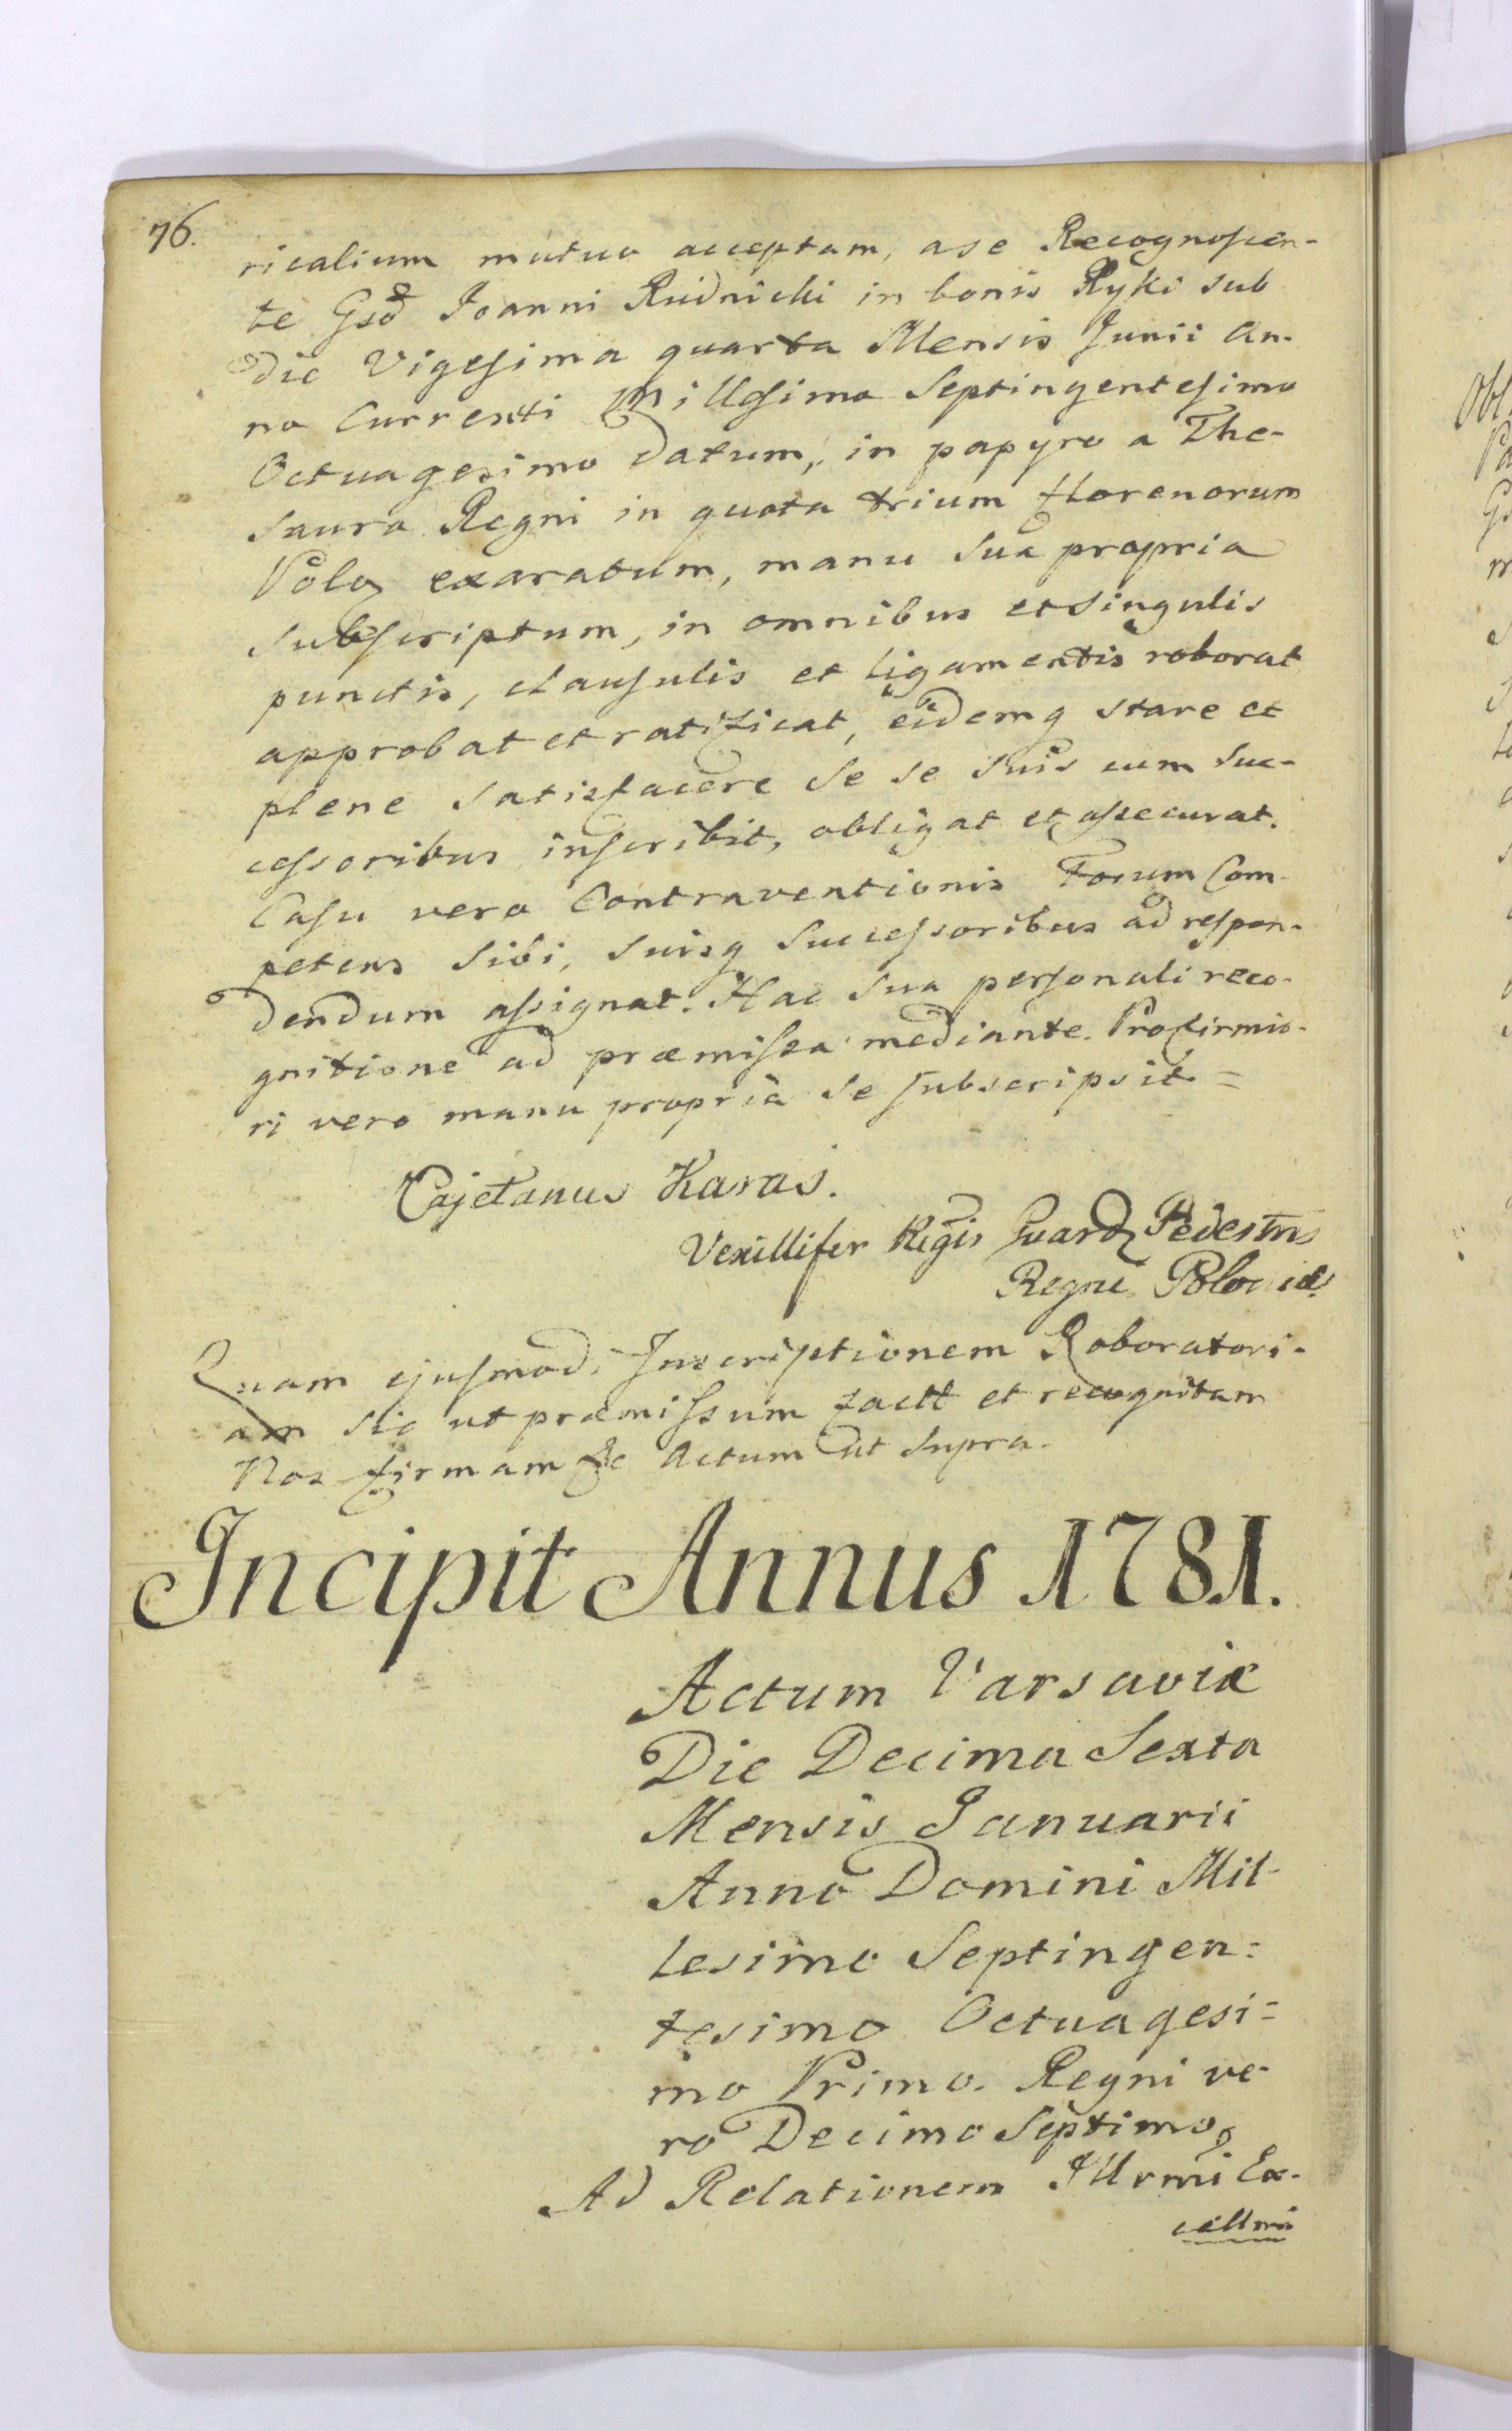 76.
ricalium mutuo acceptam, a se Recognoscen-
te Gsō Joanni Rudnicki in bonis Ryki sub
Die Vigesima quarta Mensis Junii an-
no Currenti Millesimo Septingentesimo
Octuagesimo Datum, in papyro a The-
sauro Regni in quota trium florenorum
Poloq exaratum, manu sua propria
subscriptum, in omnibus et singulis
punctis, clausulis et ligamentis roborat
approbat et ratificat, eidemq stare et
plene satisfacere se se suis cum suc-
cessoribus inscribit, obligat et assecurat.
Casu vero Contraventionis Forum Com-
petens sibi, suisq Successoribus ad respon-
dendum assignat. Hac sua personali reco-
gnitione ad præmissa mediante. Pro firmio-
ri vero manu propria se subscripsit =
Cajetanus Karas.
Vexillifer Regis Guardz Pedestris
Regni Poloniæ.
Quam ejusmodi Inscriptionem Roboratori-
am sic ut præmissum factt et recognitam
Nos firmam &c Actum ut supra.
Incipit Annus 1781.
Actum Varsaviæ
Die Decima Sexta
Mensis Januarii
Anno Domini Mil-
lesimo Septingen=
tesimo Octuagesi=
mo Primo. Regni ve-
ro Decimo Septimo,
Ad Relationem Illrmi Ex-
cellmi